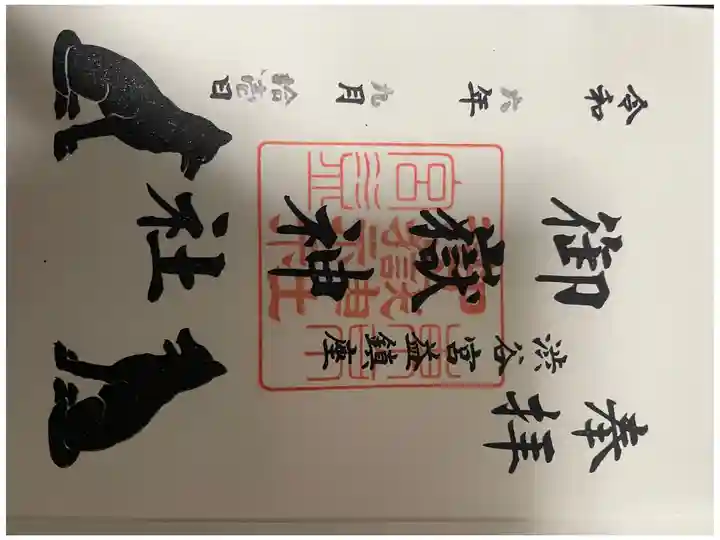 奉拝
渋谷宮益鎮座
御嶽神社
令和六年九月拾壹日